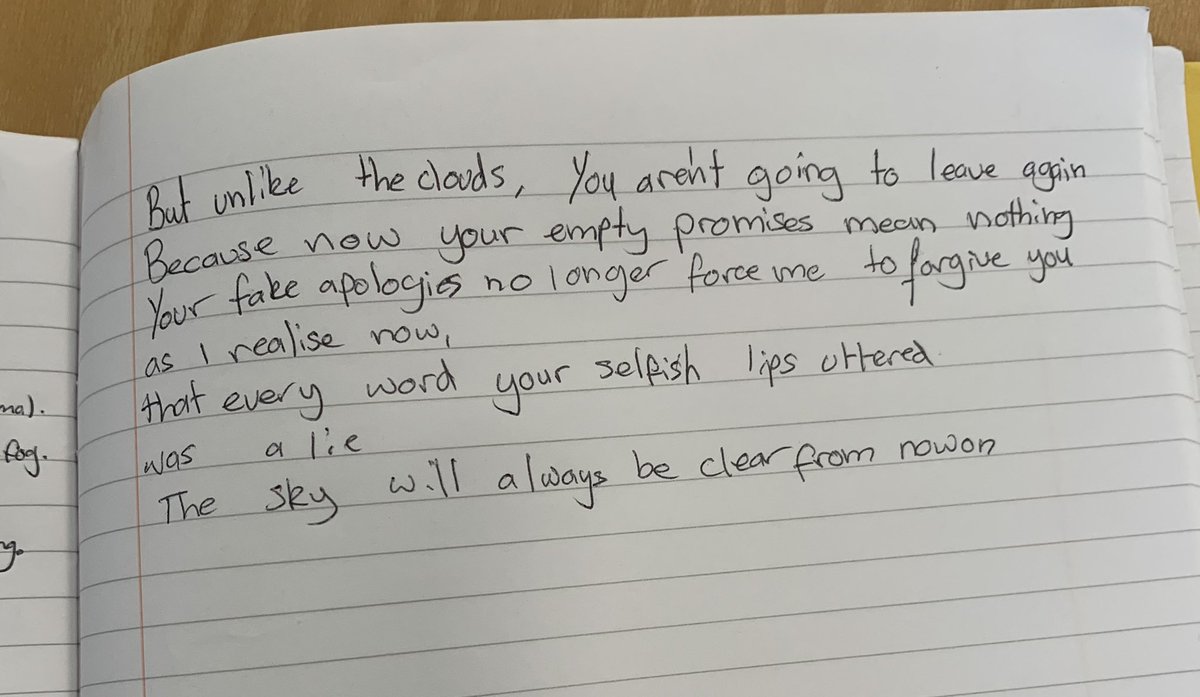 But unlike the clouds, You aren't going to leave again
Because now your empty promises mean nothing
Your fake apologies no longer force me to forgive you
as I realise now,
that every word your selfish lips uttered
was a lie
The sky will always be clear from nowon
ma).
fog.
y.